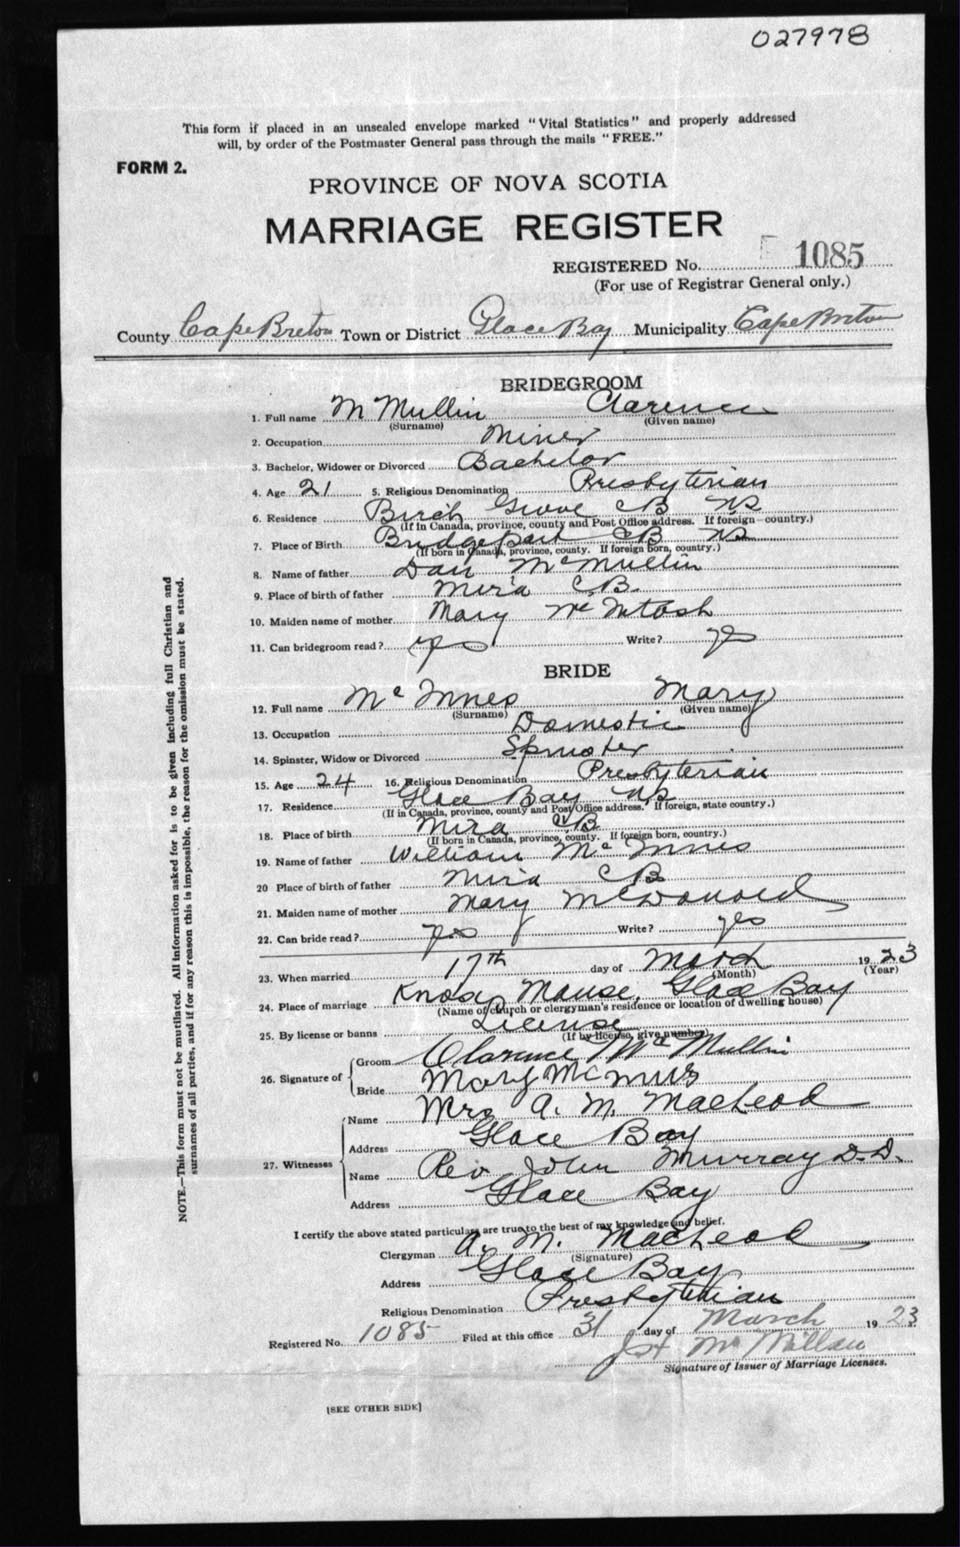 027978
This form if placed in an unsealed envelope marked "Vital Statistics" and properly addressed
will, by order of the Postmaster General pass through the mails "FREE."
FORM 2.
PROVINCE OF NOVA SCOTIA
MARRIAGE REGISTER
REGISTERED No. 1085
(For use of Registrar General only.)
County Cape Breton Town or District Glace Bay Municipality Cape Breton
BRIDEGROOM
1. Full name McMullin Clarence
(Surname) (Given name)
2. Occupation Miner
3. Bachelor, Widower or Divorced Bachelor
4. Age 21 5. Religious Denomination Presbyterian
6. Residence Birch Grove CB NS
(If in Canada, province, county and Post Office address. If foreign—country.)
7. Place of Birth Bridgeport CB NS
(If born in Canada, province, county. If foreign born, country.)
8. Name of father Dan McMullin
9. Place of birth of father Mira CB.
10. Maiden name of mother Mary McIntosh
11. Can bridegroom read? yes Write? yes
BRIDE
12. Full name McInnes Mary
(Surname) (Given name)
13. Occupation Domestic
14. Spinster, Widow or Divorced Spinster
15. Age 24 16. Religious Denomination Presbyterian
17. Residence Glace Bay NS
(If in Canada, province, county and Post Office address. If foreign, state country.)
18. Place of birth Mira CB
(If born in Canada, province, county. If foreign born, country.)
19. Name of father William McInnes
20 Place of birth of father Mira CB
21. Maiden name of mother Mary McDonald
22. Can bride read? yes Write? yes
23. When married 17th day of March 1923
(Month) (Year)
24. Place of marriage Knox Manse, Glace Bay
(Name of church or clergyman's residence or location of dwelling house)
25. By license or banns License
(If by license, give number)
26. Signature of
Groom Clarence McMullin
Bride Mary McInnis
27. Witnesses
Name Mrs A. M. MacLeod
Address Glace Bay
Name Rev John Murray D.D.
Address Glace Bay
I certify the above stated particulars are true to the best of my knowledge and belief.
Clergyman A. M. MacLeod
(Signature)
Address Glace Bay
Religious Denomination Presbyterian
Registered No. 1085 Filed at this office 31 day of March 1923
McMillan
Signature of Issuer of Marriage Licenses.
[SEE OTHER SIDE]
NOTE.—This form must not be mutilated. All information asked for is to be given including full Christian and
surnames of all parties, and if for any reason this is impossible, the reason for the omission must be stated.